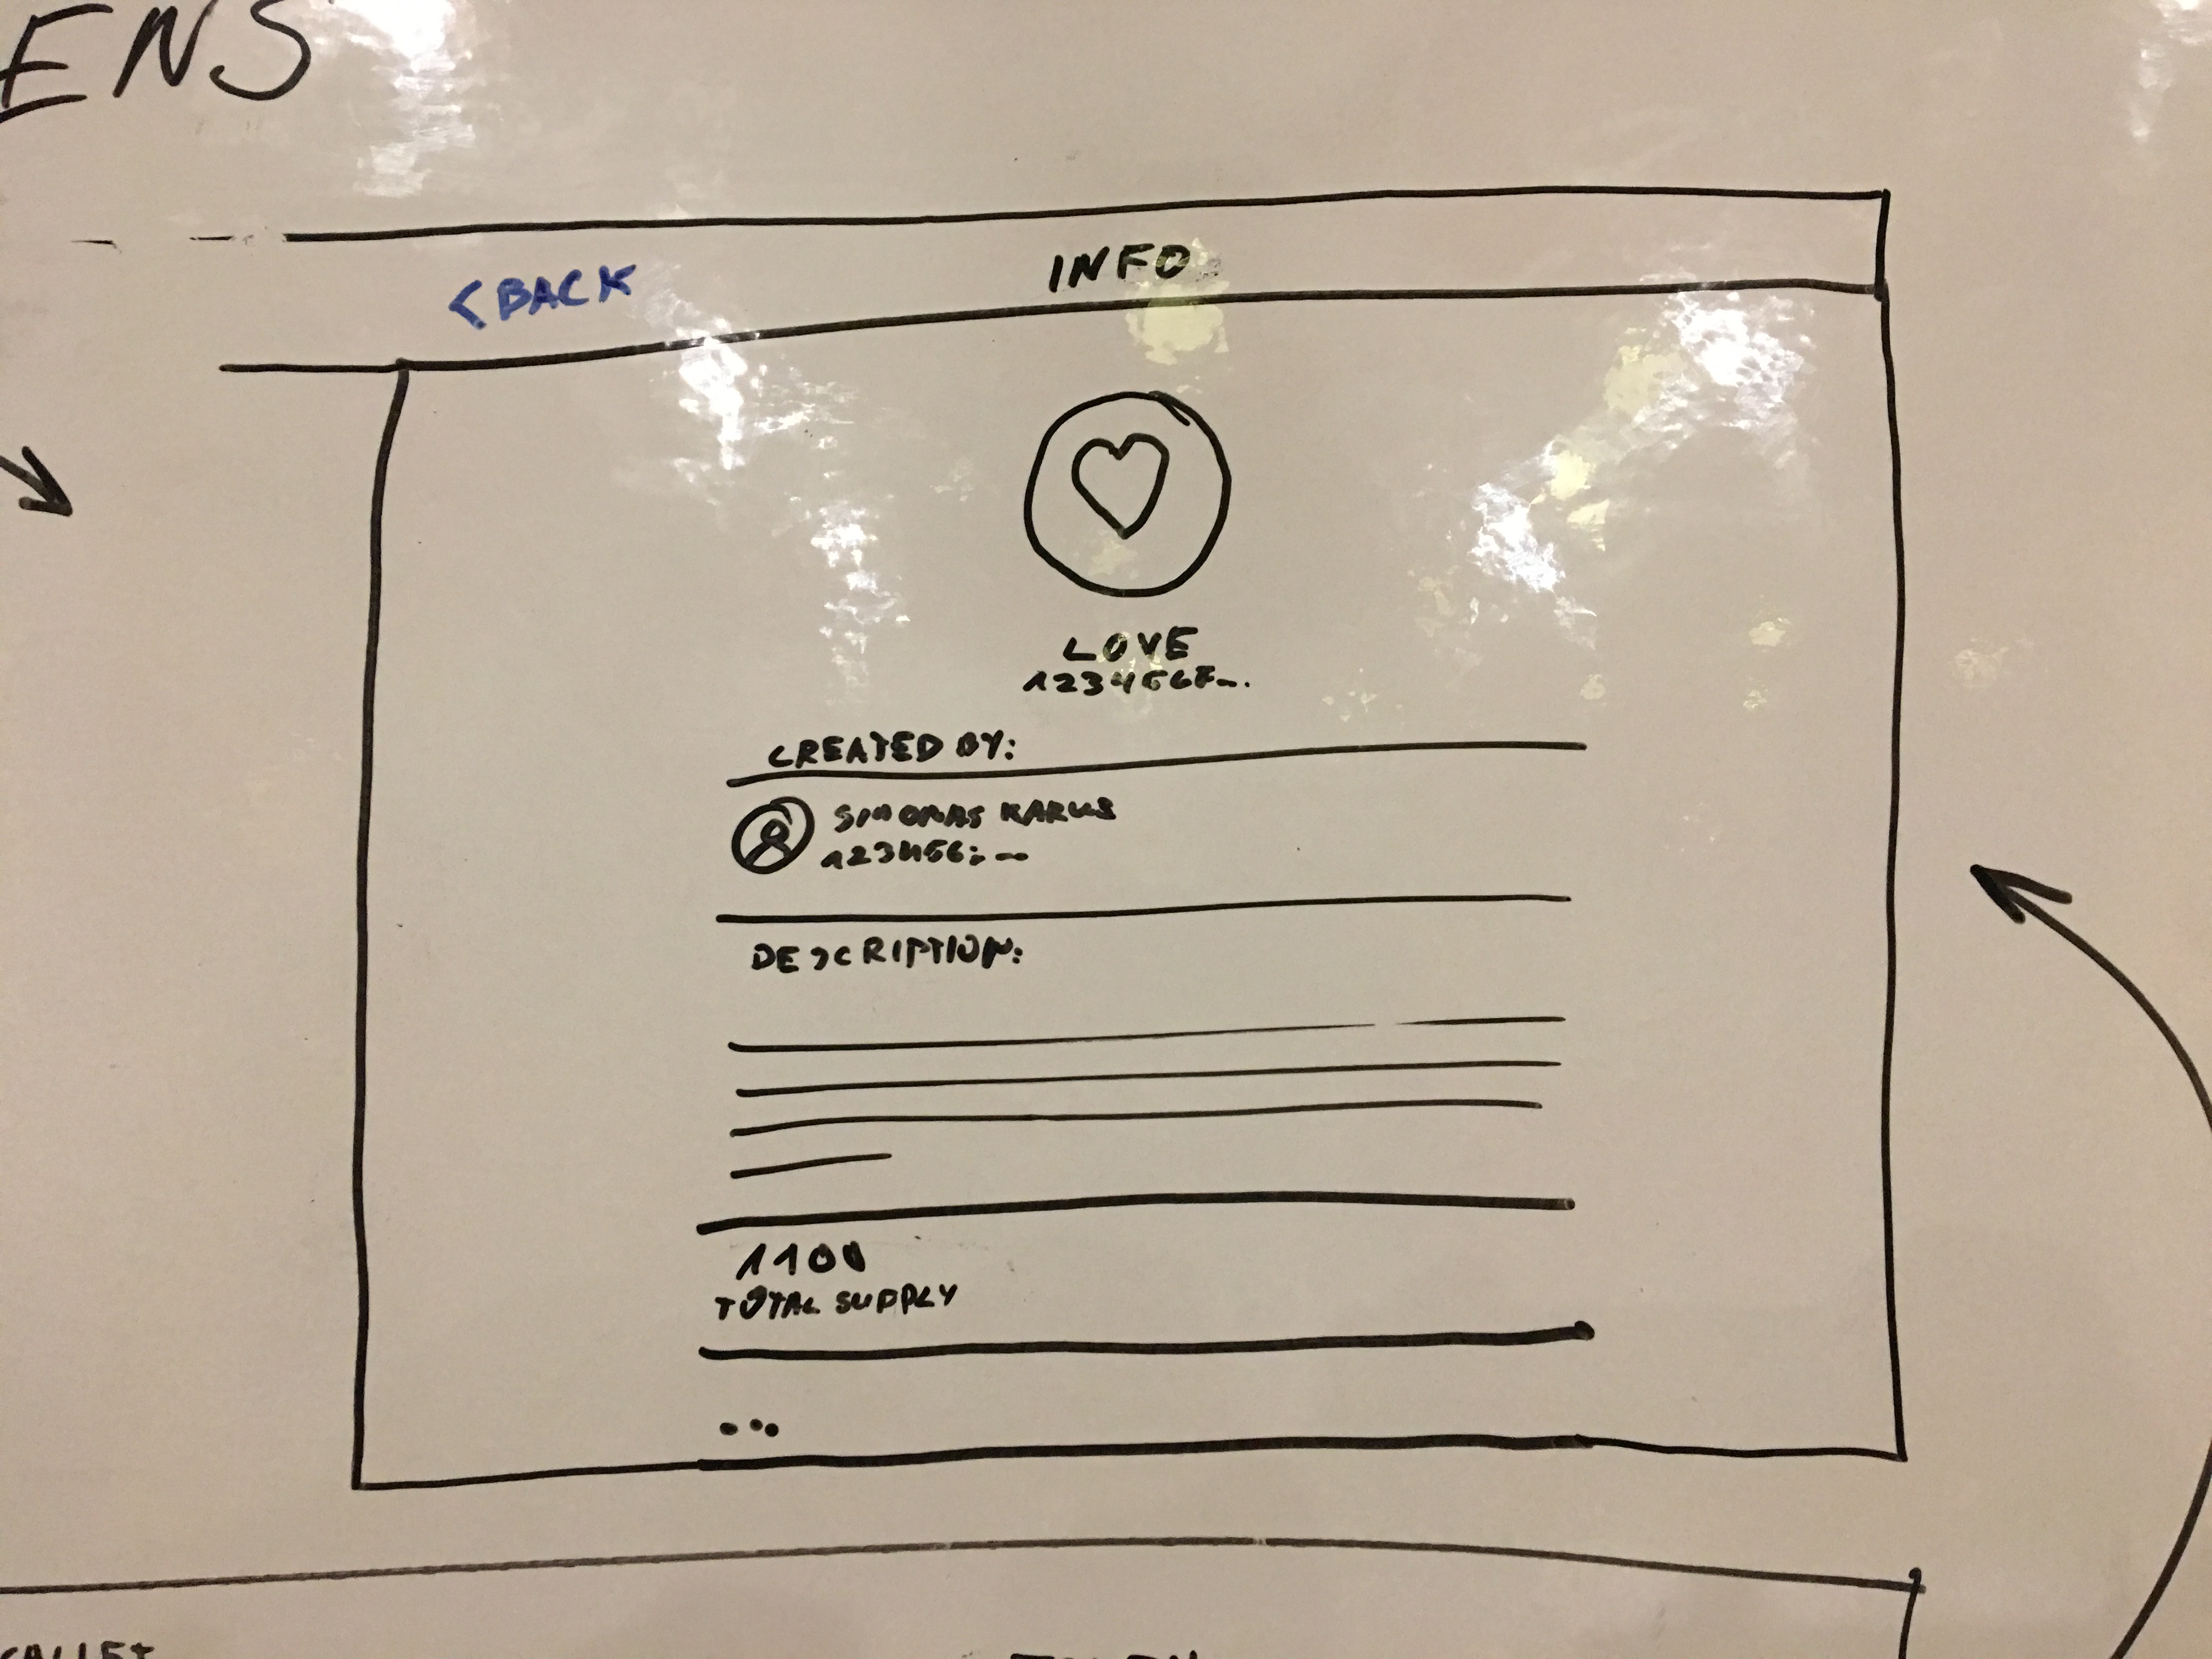 ENS
< BACK
INFO
LOVE
123456F...
CREATED BY:
SIMONAS KARUS
123456:...
DESCRIPTION:
1100
TOTAL SUPPLY
...